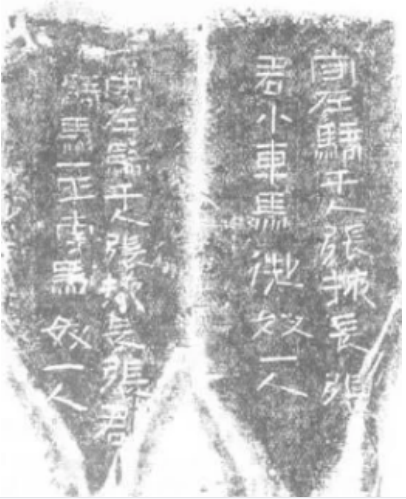 守左騎千人張掖長張
君小車馬御奴一人
守左騎千人張掖長張君
騎馬一匹牽馬奴一人